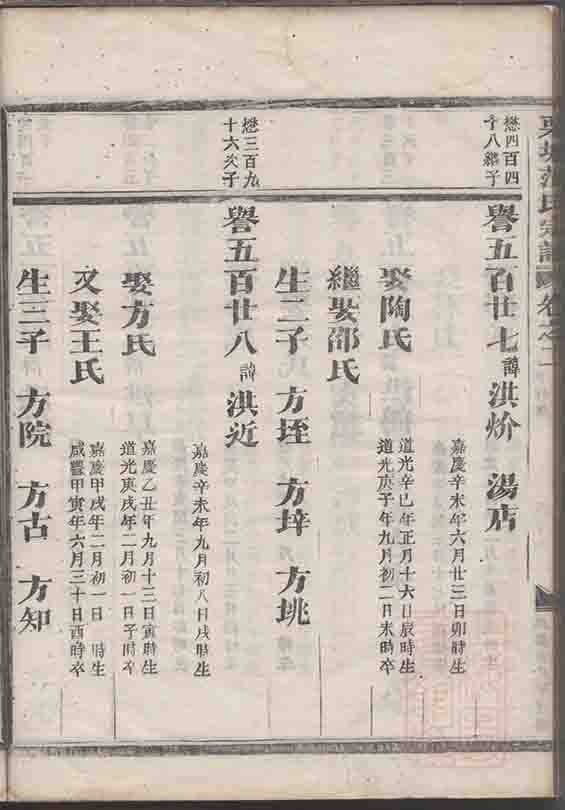 懋四百四
十八繼子
譽五百廿七諱洪炌 湯店
嘉慶辛未年六月廿三日卯時生
娶陶氏
道光辛巳年正月十六日辰時生
道光庚子年九月初二日未時卒
繼娶邵氏
生二子 方垤 方垶 方垗
懋三百九
十六次子
譽五百廿八諱洪近
嘉慶辛未年九月初八日戌時生
娶方氏
嘉慶乙丑年九月十三日寅時生
道光庚戌年二月初一日子時卒
又娶王氏
嘉慶甲戌年二月初一日 時生
咸豐甲寅年六月三十日酉時卒
生三子 方院 方古 方知